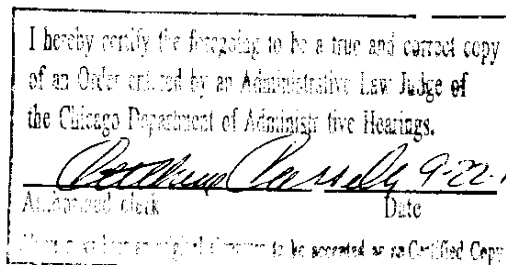 I hereby certify the foregoing to be a true and correct copy
of an Order entered by an Administrative Law Judge of
the Chicago Department of Administr tive Hearings.
9-22-
Authorized clerk Date
original to be accepted as Certified Copy